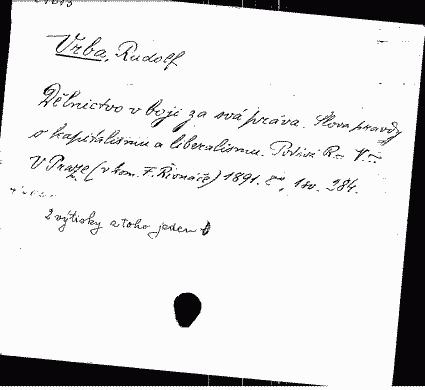 Vrba, Rudolf
Dělnictvo v boji za svá práva. Slova pravdy
o kapitalismu a liberalismu. Podává R. V.
V Praze (v kom. F. Řivnáče) 1891. 8°, 1 sv. 284.
2 výtisky a toho jeden